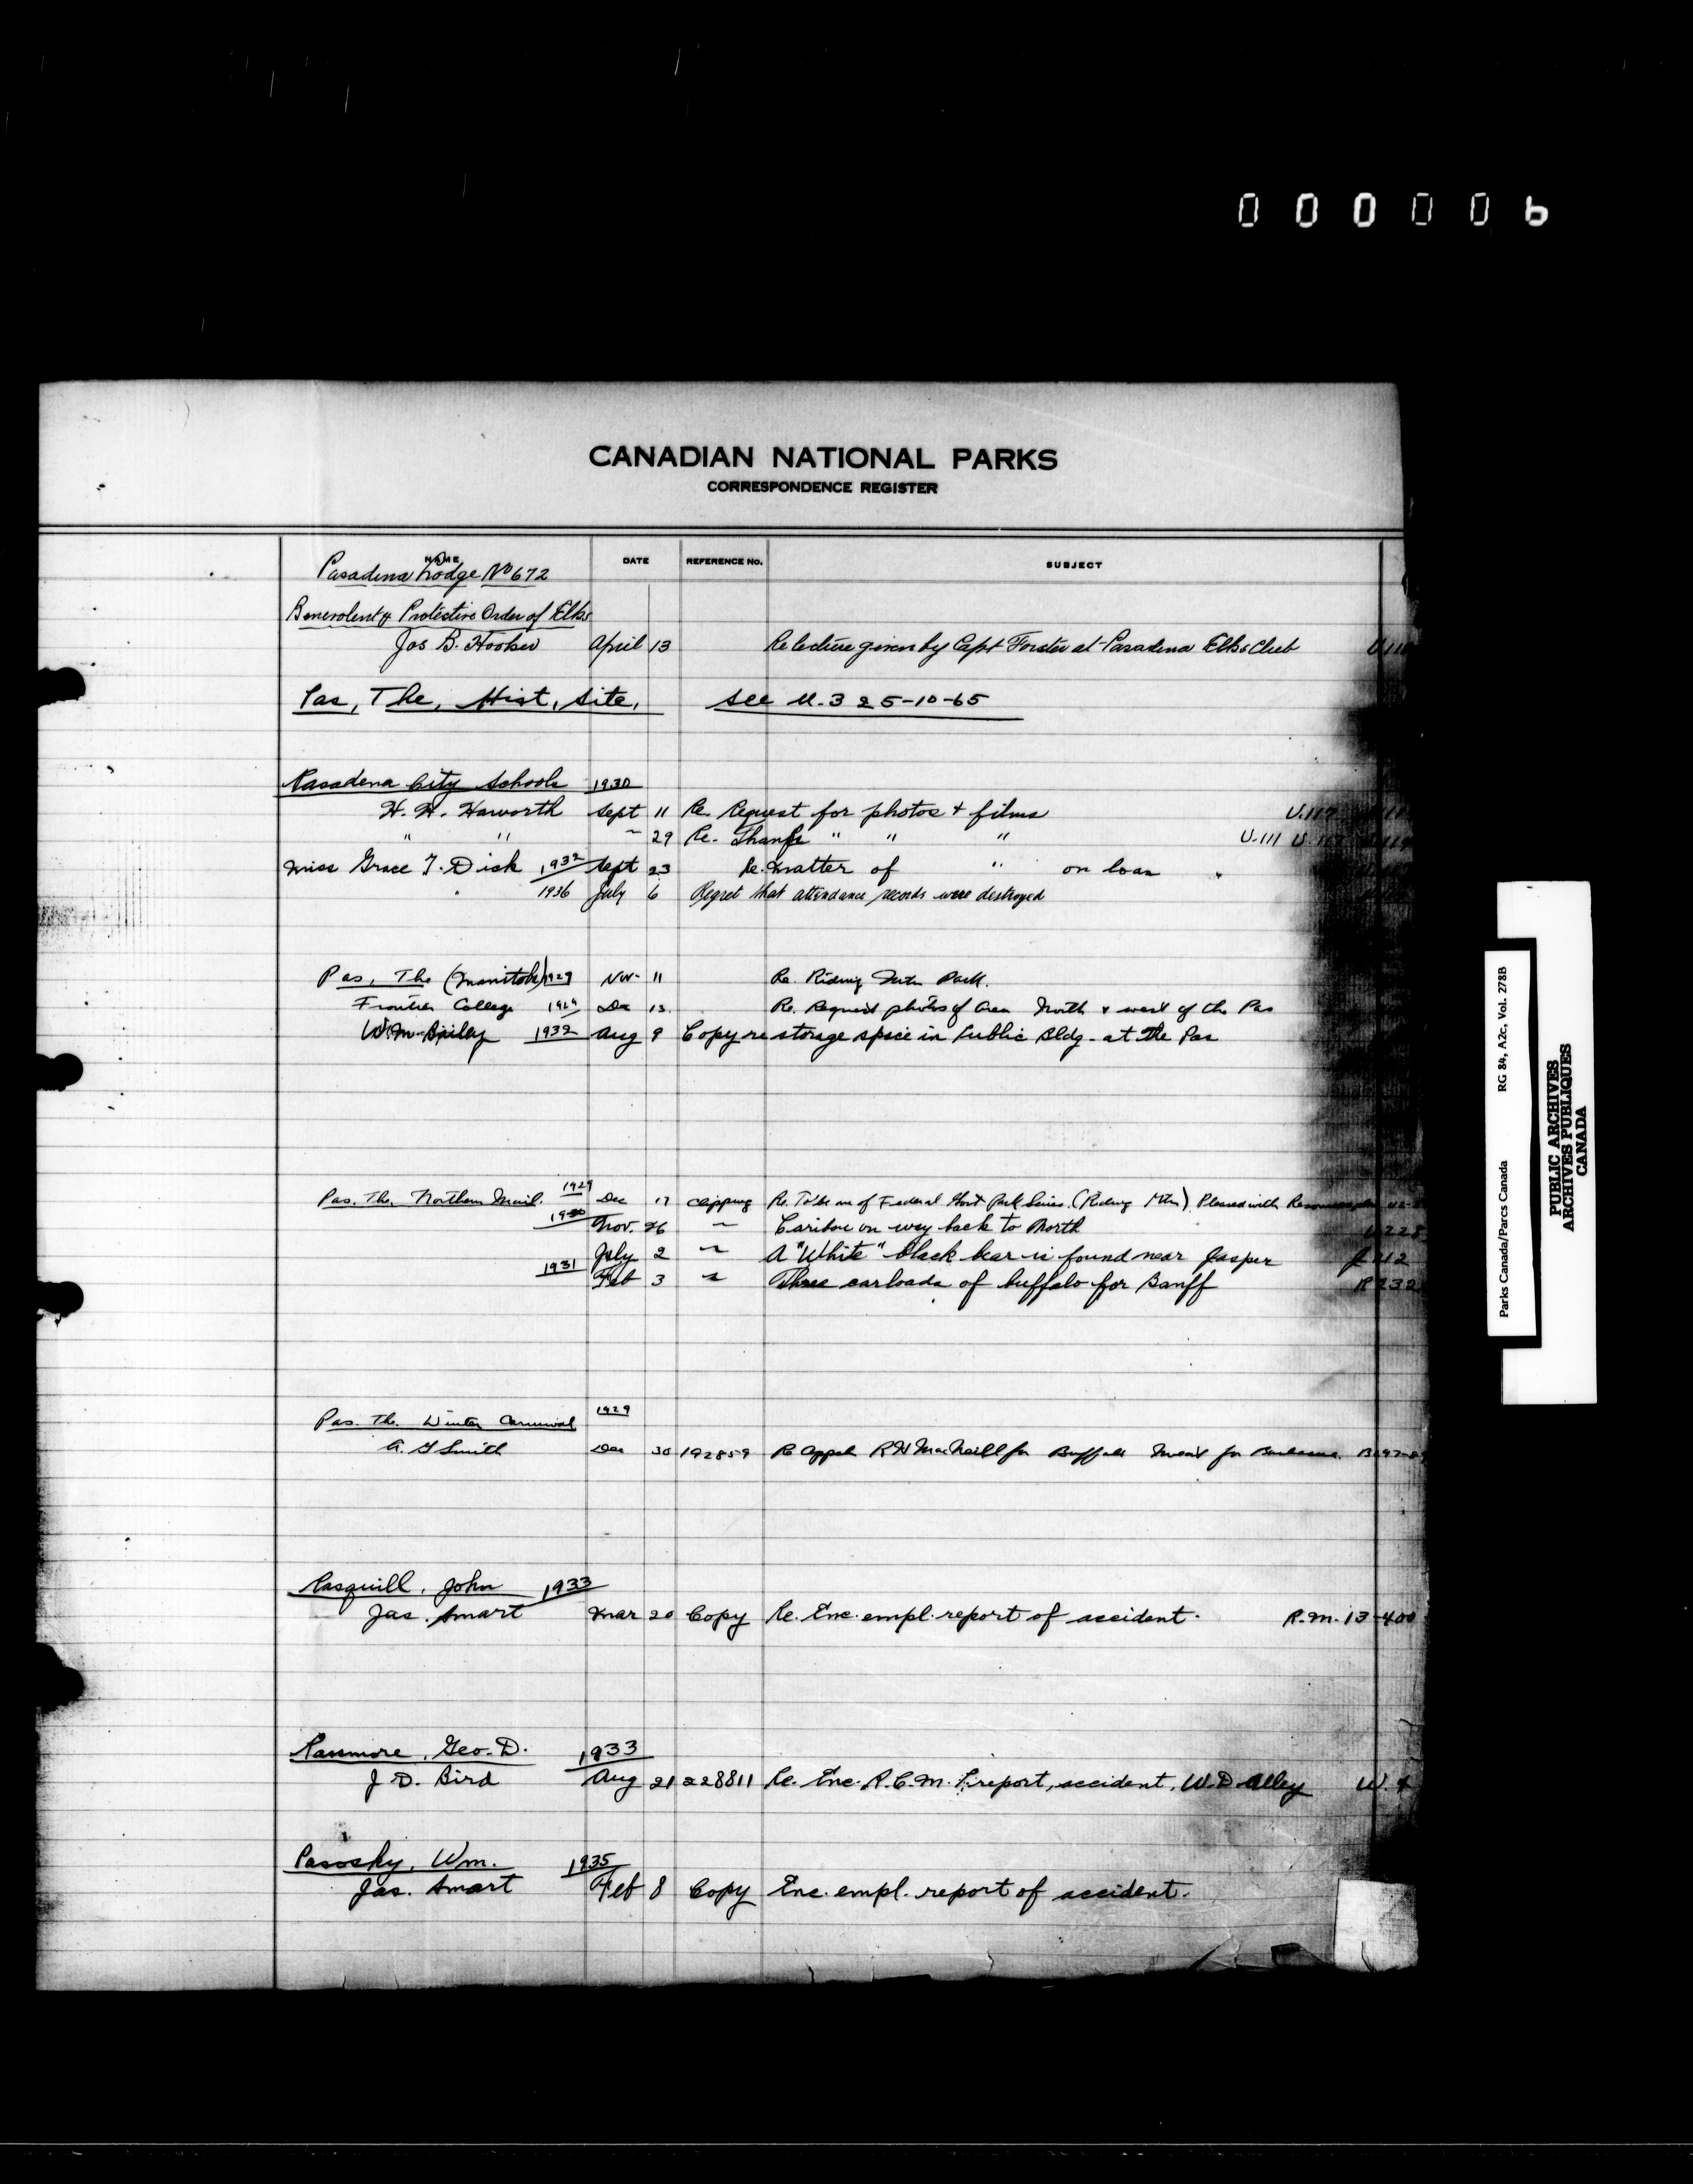 000006
CANADIAN NATIONAL PARKS
CORRESPONDENCE REGISTER
NAME DATE REFERENCE NO. SUBJECT
Pasadena Lodge No 672
Benevolent & Protective Order of Elks
Jos B. Hooker April 13 Re lecture given by Capt Forster at Pasadena Elks Club U.11
Pas, The, Hist, Site, see U.325-10-65
Pasadena City Schools 1930
H. H. Haworth Sept 11 Re. Request for photos + films U.117
" " " 29 Re. Thanks " " " U.111 U.117
Miss Grace T. Dick 1932 Sept 23 Re. matter of " on loan
1936 July 6 Regret that attendance records were destroyed
Pas, The (Manitoba) 1929 Nov. 11 Re. Riding Mtn Park.
Frontier College 1929 Dec 13. Re. Request photos of area North & west of the Pas
W.M. Bailey 1932 Aug 9 Copy re storage space in Public Bldg. at the Pas
Pas. The, Northern Mail. 1929 Dec 17 clipping Re. To be one of Federal Govt Park Series. (Riding Mtn). Pleased with
1930 Nov. 26 " Caribou on way back to North U 228
July 2 " A "White" black bear is found near Jasper J 212
1931 Feb 3 " Three carloads of buffalo for Banff 232
Pas. The. Winter Carnival 1929
A. G Smith Dec 30 192859 Re appeal R H MacNeill for Buffalo meat for Barbecue.
Pasquill, John 1933
Jas. Smart Mar 20 Copy Re. Enc. empl. report of accident. R.M. 13-400
Passmore, Geo. D. 1933
J D. Bird Aug 21 228811 Re. Enc. R.C.M.P. report, accident, W.D. Alley W.4
Pasosky, Wm. 1935
Jas. Smart Feb 8 Copy Enc. empl. report of accident.
Parks Canada/Parcs Canada RG 84, A2c, Vol. 278B
PUBLIC ARCHIVES
ARCHIVES PUBLIQUES
CANADA